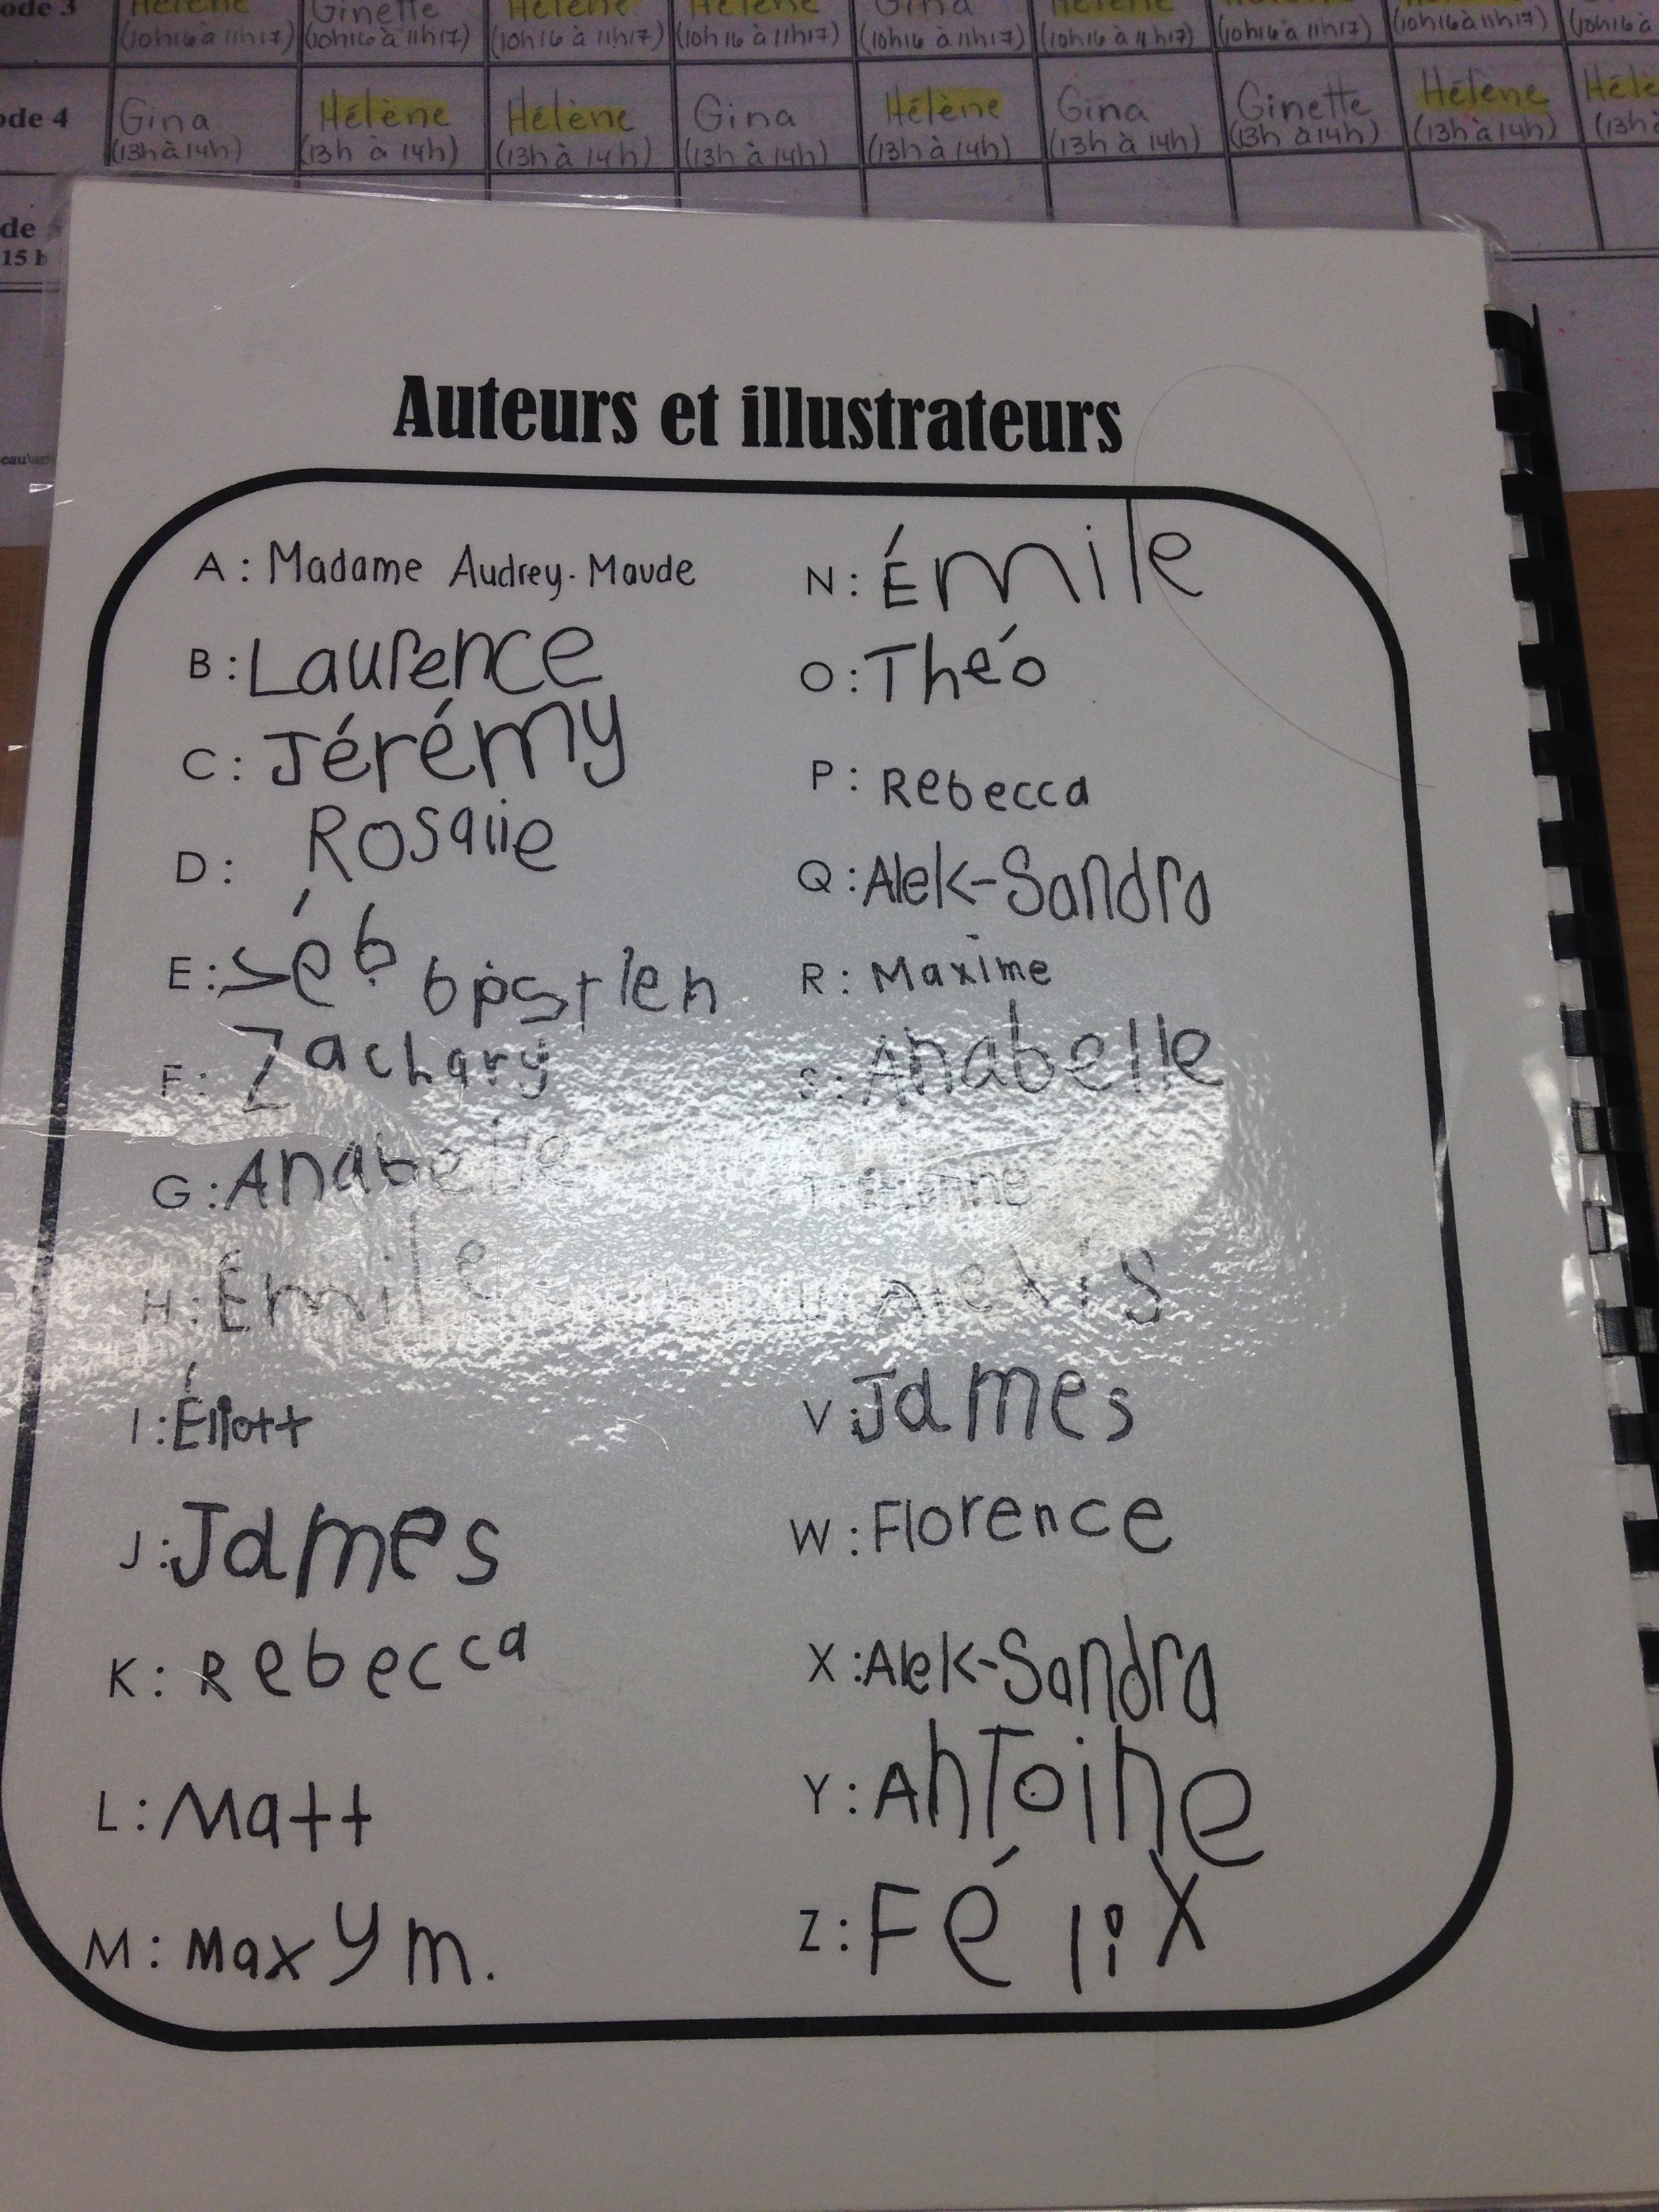 ode 3 Hélène Ginette Hélène Hélène Gina Hélène
(10h16 à 11h17) (10h16 à 11h17) (10h16 à 11h17) (10h16 à 11h17) (10h16 à 11h17) (10h16 à 11h17) (10h16 à 11h17) (10h16 à 11h17) (10h16 à
ode 4 Gina Hélène Hélène Gina Hélène Gina Ginette Hélène Hélè
(13h à 14h) (13h à 14h) (13h à 14h) (13h à 14h) (13h à 14h) (13h à 14h) (13h à 14h) (13h à 14h) (13h à
de
15 h
Auteurs et illustrateurs
A: Madame Audrey-Maude
B: Laurence
C: Jérémy
D: Rosalie
E: Séb
F: Zachary
G: Anabelle
H: Émile
I: Éliott
J: James
K: Rebecca
L: Matt
M: Maxym.
N: Émile
O: Théo
P: Rebecca
Q: Alek-Sandra
R: Maxime
S: Anabelle
U: Alexis
V: James
W: Florence
X: Alek-Sandra
Y: Antoine
Z: Félix